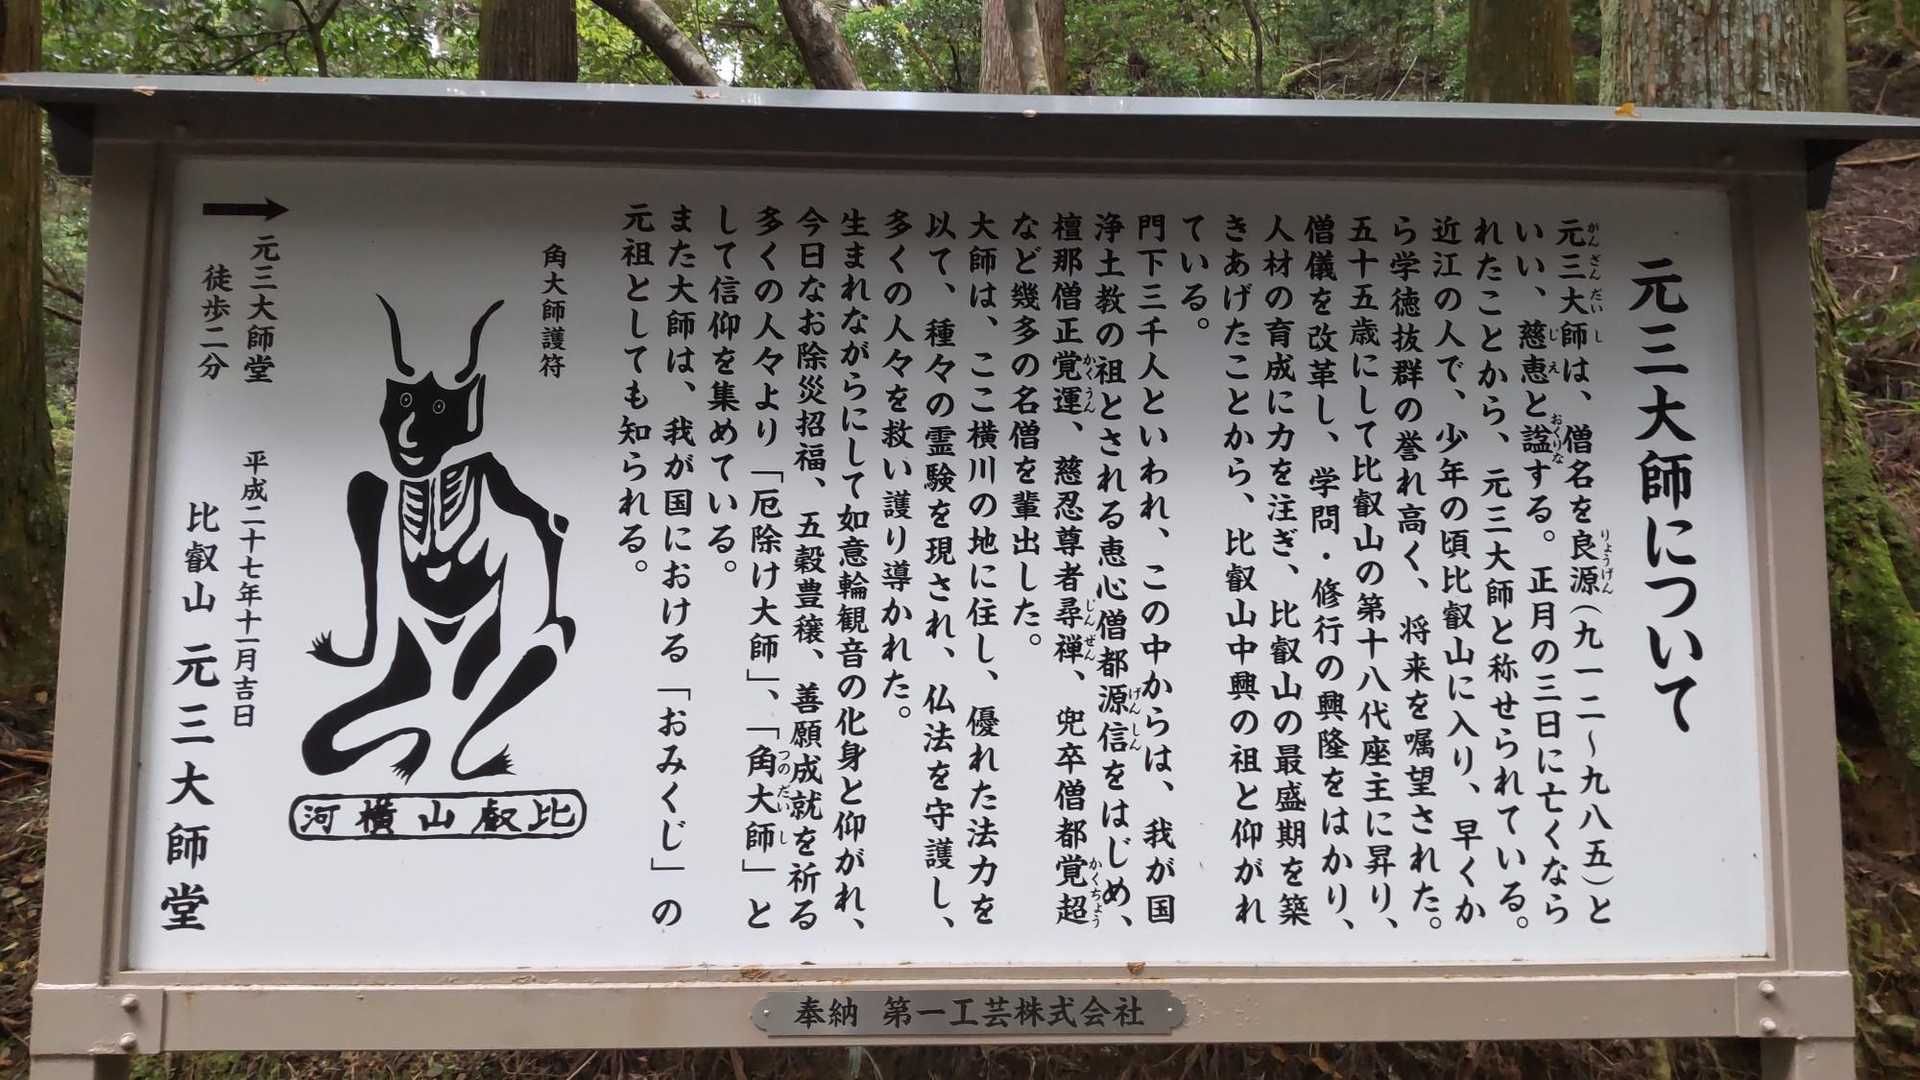 元三大師について
元三大師は、僧名を良源(九一二～九八五)と
いい、慈恵と諡する。正月の三日に亡くなら
れたことから、元三大師と称せられている。
近江の人で、少年の頃比叡山に入り、早くか
ら学徳抜群の誉れ高く、将来を嘱望された。
五十五歳にして比叡山の第十八代座主に昇り、
僧儀を改革し、学問・修行の興隆をはかり、
人材の育成に力を注ぎ、比叡山の最盛期を築
きあげたことから、比叡山中興の祖と仰がれ
ている。
門下三千人といわれ、この中からは、我が国
浄土教の祖とされる恵心僧都源信をはじめ、
檀那僧正覚運、慈忍尊者尋禅、兜卒僧都覚超
など幾多の名僧を輩出した。
大師は、ここ横川の地に住し、優れた法力を
以て、種々の霊験を現され、仏法を守護し、
多くの人々を救い護り導かれた。
生まれながらにして如意輪観音の化身と仰がれ、
今日なお除災招福、五穀豊穣、善願成就を祈る
多くの人々より「厄除け大師」、「角大師」と
して信仰を集めている。
また大師は、我が国における「おみくじ」の
元祖としても知られる。
角大師護符
比叡山横河
→
元三大師堂
徒歩二分
平成二十七年十一月吉日
比叡山 元三大師堂
奉納 第一工芸株式会社